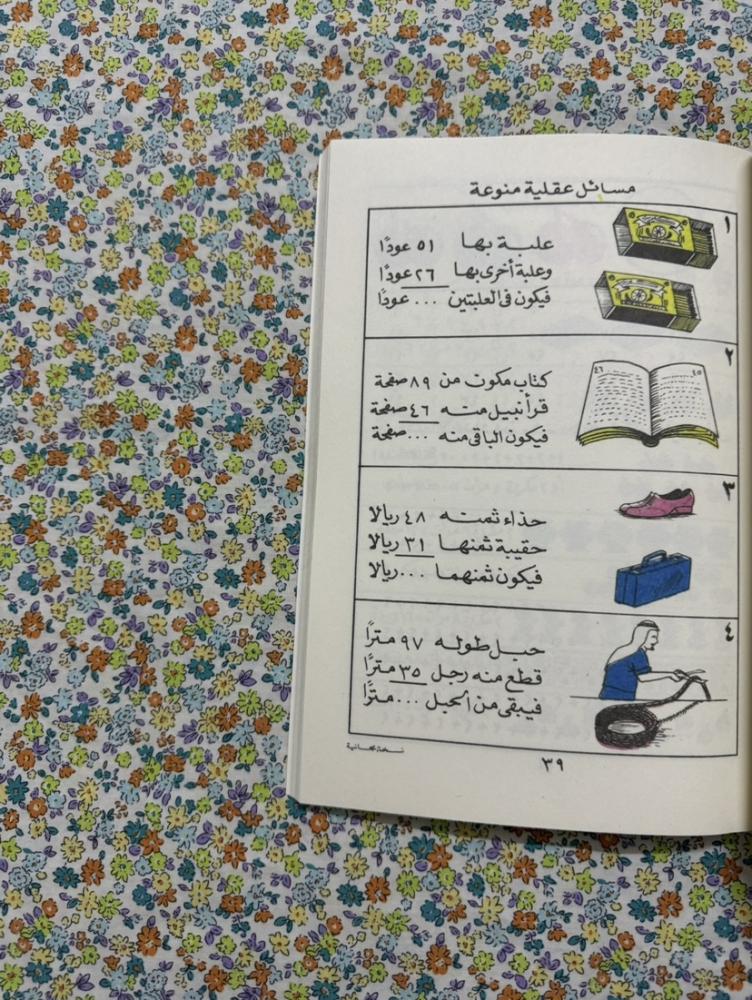 مسائل عقلية منوعة
١
علبة بها ٥١ عودًا
وعلبة أخرى بها ٢٦ عودًا
فيكون فى العلبتين ... عودًا
٢
كتاب مكون من ٨٩ صفحة
قرأ نبيل منه ٤٦ صفحة
فيكون الباقى منه ... صفحة
٤٥
٤٦
٣
حذاء ثمنه ٤٨ ريالا
حقيبة ثمنها ٣١ ريالا
فيكون ثمنهما ... ريالا
٤
حبل طوله ٩٧ مترًا
قطع منه رجل ٣٥ مترًا
فيبقى من الحبل ... مترًا
نسخة مجانية
٣٩